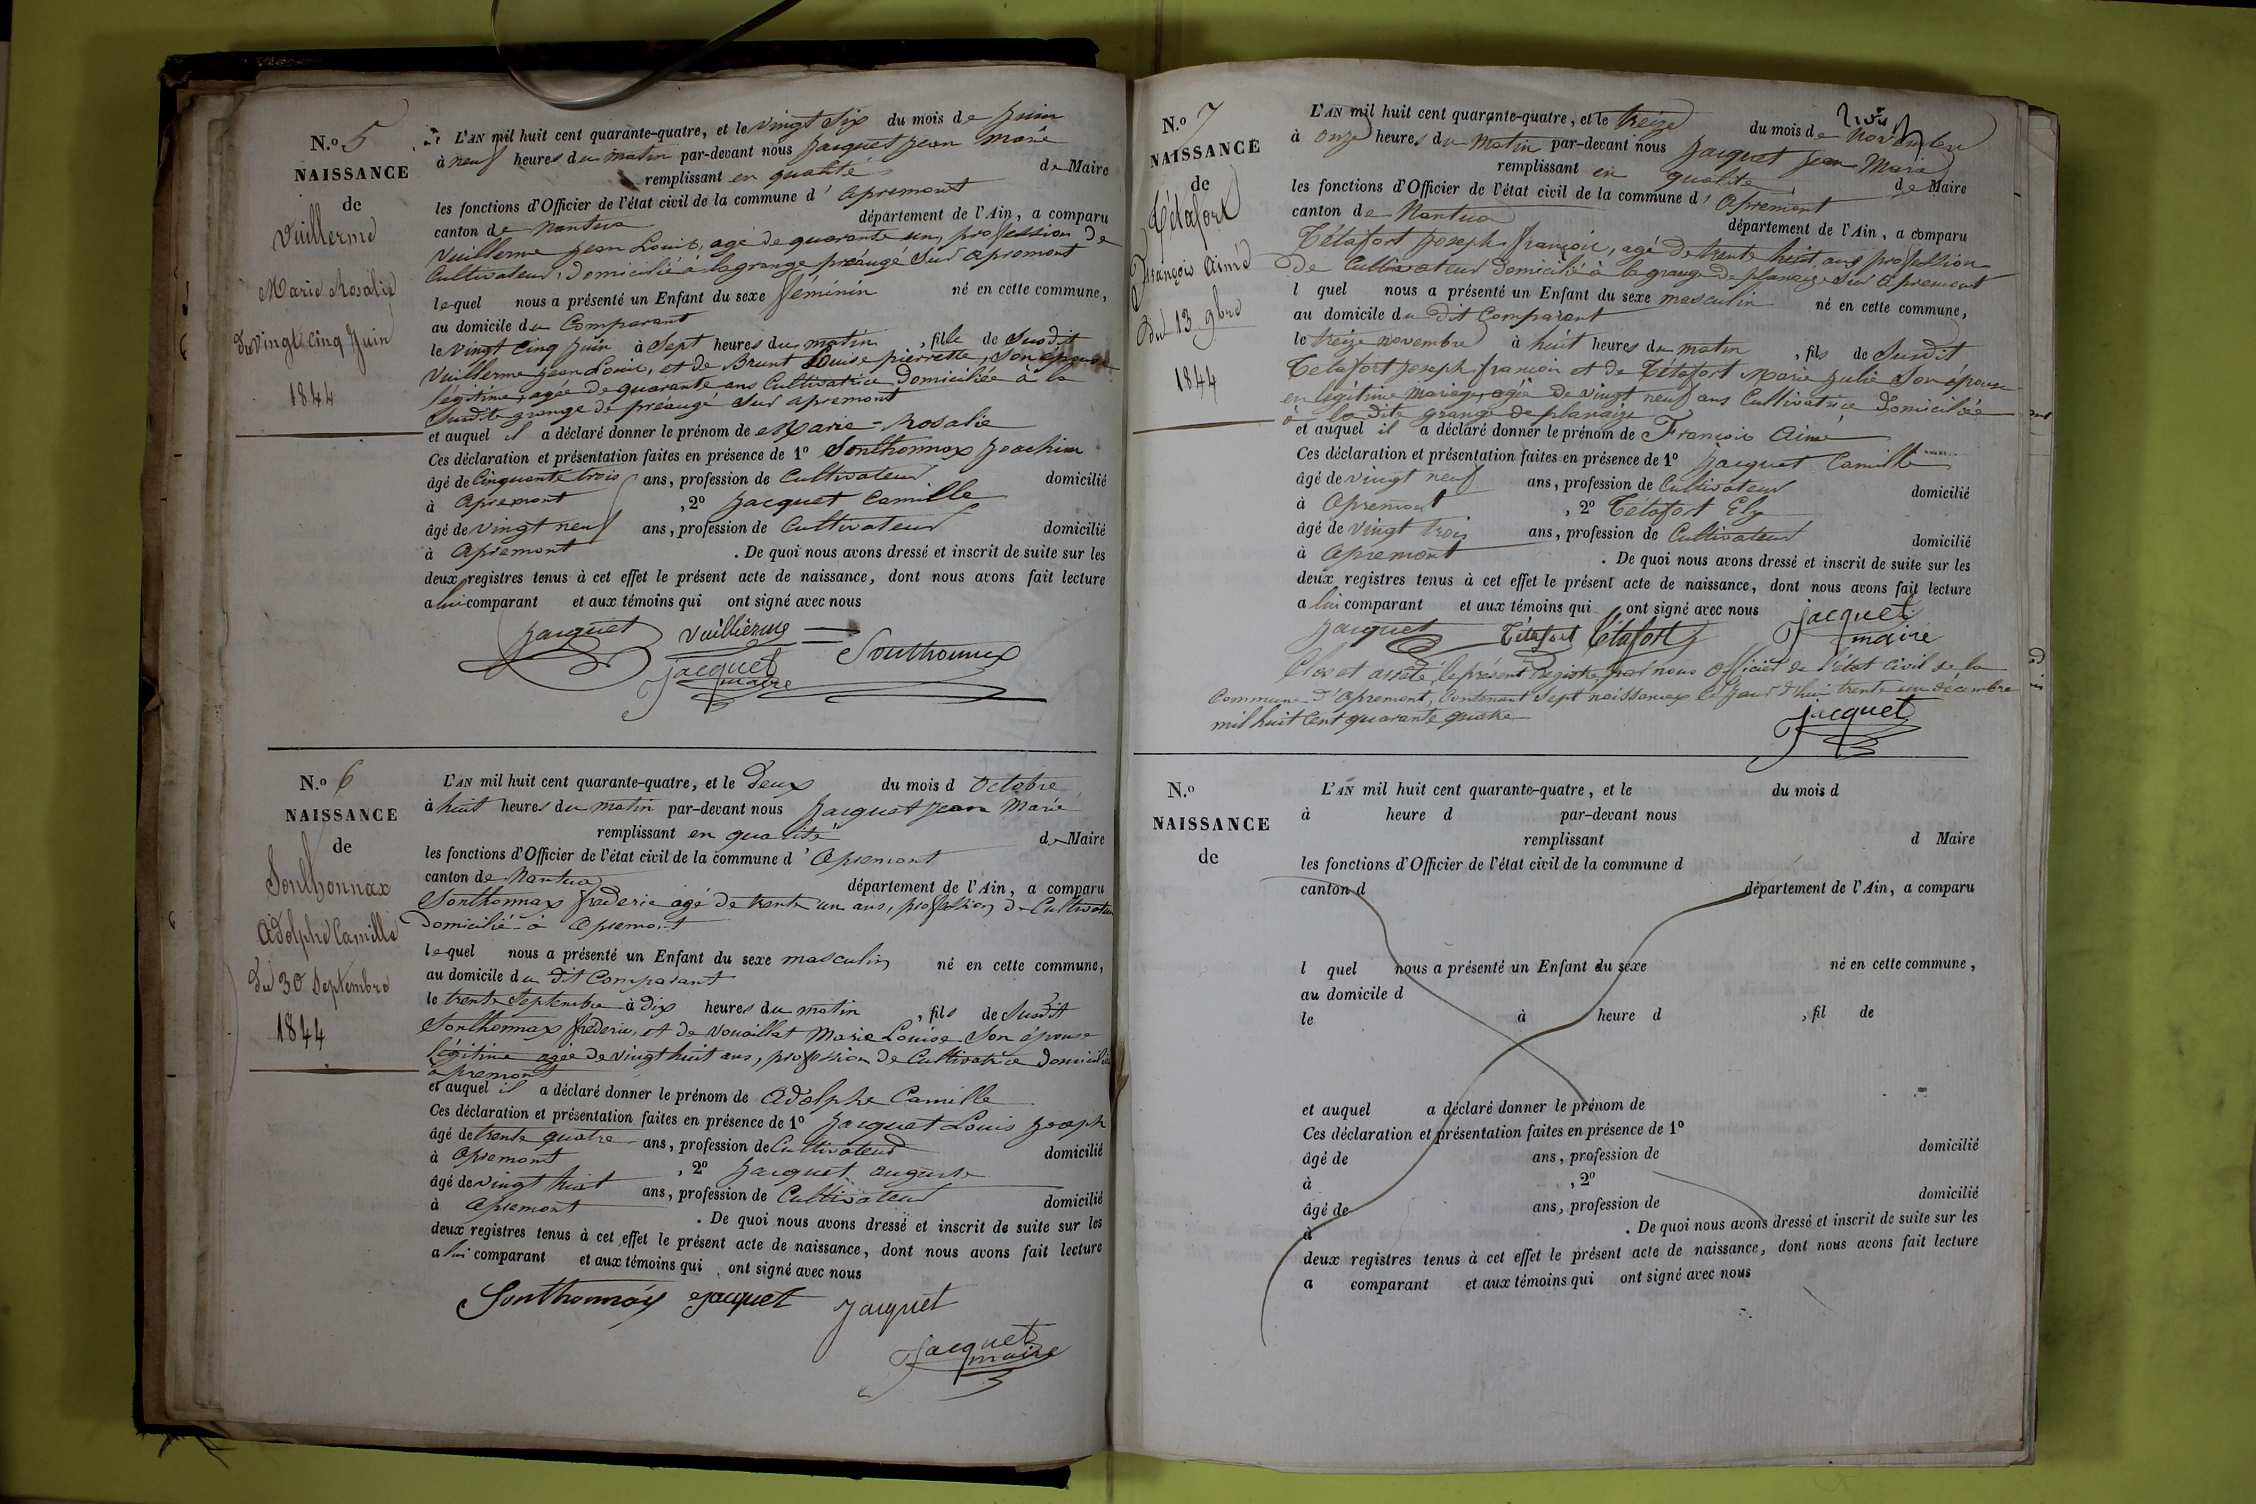 N.o 5
NAISSANCE
de
Vuillerme
Marie Rosalie
du vingt cinq Juin
1844
L'AN mil huit cent quarante-quatre, et le vingt six du mois de juin
à neuf heures du matin par-devant nous Jacquet jean marie
remplissant en qualité de Maire
les fonctions d'Officier de l'état civil de la commune d'apremont
canton de nantua département de l'Ain, a comparu
Vuillerme jean Louis, agé de quarante un, profession de
Cultivateur, domicilié à lagrange préaugé Sur apremont
lequel nous a présenté un Enfant du sexe féminin né en cette commune,
au domicile du Comparant
le vingt cinq juin à Sept heures du matin, fille de Susdit
Vuillerme jean Louis, et de Brunt Louise pierrette, Son épouse
légitime, agée de quarante ans Cultivatrice Domiciliée à la
Susdite grange de préaugé Sur apremont
et auquel il a déclaré donner le prénom de Marie-Rosalie
Ces déclaration et présentation faites en présence de 1º Sonthonnax joachim
âgé de Cinquante trois ans, profession de Cultivateur domicilié
à apremont, 2º Jacquet Camille
âgé de vingt neuf ans, profession de Cultivateur domicilié
à apremont. De quoi nous avons dressé et inscrit de suite sur les
deux registres tenus à cet effet le présent acte de naissance, dont nous avons fait lecture
a lui comparant et aux témoins qui ont signé avec nous
Jacquet Vuillerme Sonthonnax
jacquet
maire
N.o 6
NAISSANCE
de
Sonthonnax
Adolphe Camille
du 30 Septembre
1844
L'AN mil huit cent quarante-quatre, et le Deux du mois d Octobre
à huit heures du matin par-devant nous Jacquet jean Marie
remplissant en qualité de Maire
les fonctions d'Officier de l'état civil de la commune d'apremont
canton de Nantua département de l'Ain, a comparu
Sonthonnax frederic agé de trente un ans, profession de Cultivateur
Domicilié à apremont
lequel nous a présenté un Enfant du sexe masculin né en cette commune,
au domicile du dit Comparant
le trente Septembre à dix heures du matin, fils de Susdit
Sonthonnax frederic, et de Vouaillat Marie Louise Son épouse
légitime agée de vingt huit ans, profession de Cultivatrice domiciliée
apremont
et auquel il a déclaré donner le prénom de Adolphe Camille
Ces déclaration et présentation faites en présence de 1º Jacquet Louis joseph
âgé de trente quatre ans, profession de Cultivateur domicilié
à apremont, 2º Jacquet auguste
âgé de vingt huit ans, profession de Cultivateur domicilié
à apremont. De quoi nous avons dressé et inscrit de suite sur les
deux registres tenus à cet effet le présent acte de naissance, dont nous avons fait lecture
a lui comparant et aux témoins qui ont signé avec nous
Sonthonnax Jacquet Jacquet
Jacquet
maire
N.o 7
NAISSANCE
de
Tétafort
François Aimé
du 13 9bre
1844
L'AN mil huit cent quarante-quatre, et le treize du mois de Novembre
à onze heures du Matin par-devant nous Jacquet jean Marie
remplissant en qualité de Maire
les fonctions d'Officier de l'état civil de la commune d'Apremont
canton de Nantua département de l'Ain, a comparu
Tétafort joseph françois, agé de trente huit ans profession
De Cultivateur domicilié à la grange de planaize Sur apremont
l quel nous a présenté un Enfant du sexe masculin né en cette commune,
au domicile du dit Comparant
le treize novembre à huit heures du matin, fils de Susdit
Tétafort joseph françois et de Tétafort Marie julie Son épouse
en légitime Mariage, agée de vingt neuf ans Cultivatrice domiciliée
à la dite grange de planaize
et auquel il a déclaré donner le prénom de François Aimé
Ces déclaration et présentation faites en présence de 1º Jacquet Camille
âgé de vingt neuf ans, profession de Cultivateur domicilié
à Apremont, 2º Tétafort Ely
âgé de vingt trois ans, profession de Cultivateur domicilié
à Apremont. De quoi nous avons dressé et inscrit de suite sur les
deux registres tenus à cet effet le présent acte de naissance, dont nous avons fait lecture
a lui comparant et aux témoins qui ont signé avec nous
Jacquet Tétafort Tétafort jacquet
maire
Clos et arrêté le présent Registre par nous officier de l'état civil de la
Commune d'Apremont, Contenant Sept naissances Ce jour d'hui trente un décembre
mil huit Cent quarante quatre
jacquet
N.o
NAISSANCE
de
L'AN mil huit cent quarante-quatre, et le du mois d
à heure d par-devant nous
remplissant d Maire
les fonctions d'Officier de l'état civil de la commune d
canton d département de l'Ain, a comparu
l quel nous a présenté un Enfant du sexe né en cette commune,
au domicile d
le à heure d, fil de
et auquel a déclaré donner le prénom de
Ces déclaration et présentation faites en présence de 1º
âgé de ans, profession de domicilié
à, 2º
âgé de ans, profession de domicilié
à. De quoi nous avons dressé et inscrit de suite sur les
deux registres tenus à cet effet le présent acte de naissance, dont nous avons fait lecture
a comparant et aux témoins qui ont signé avec nous